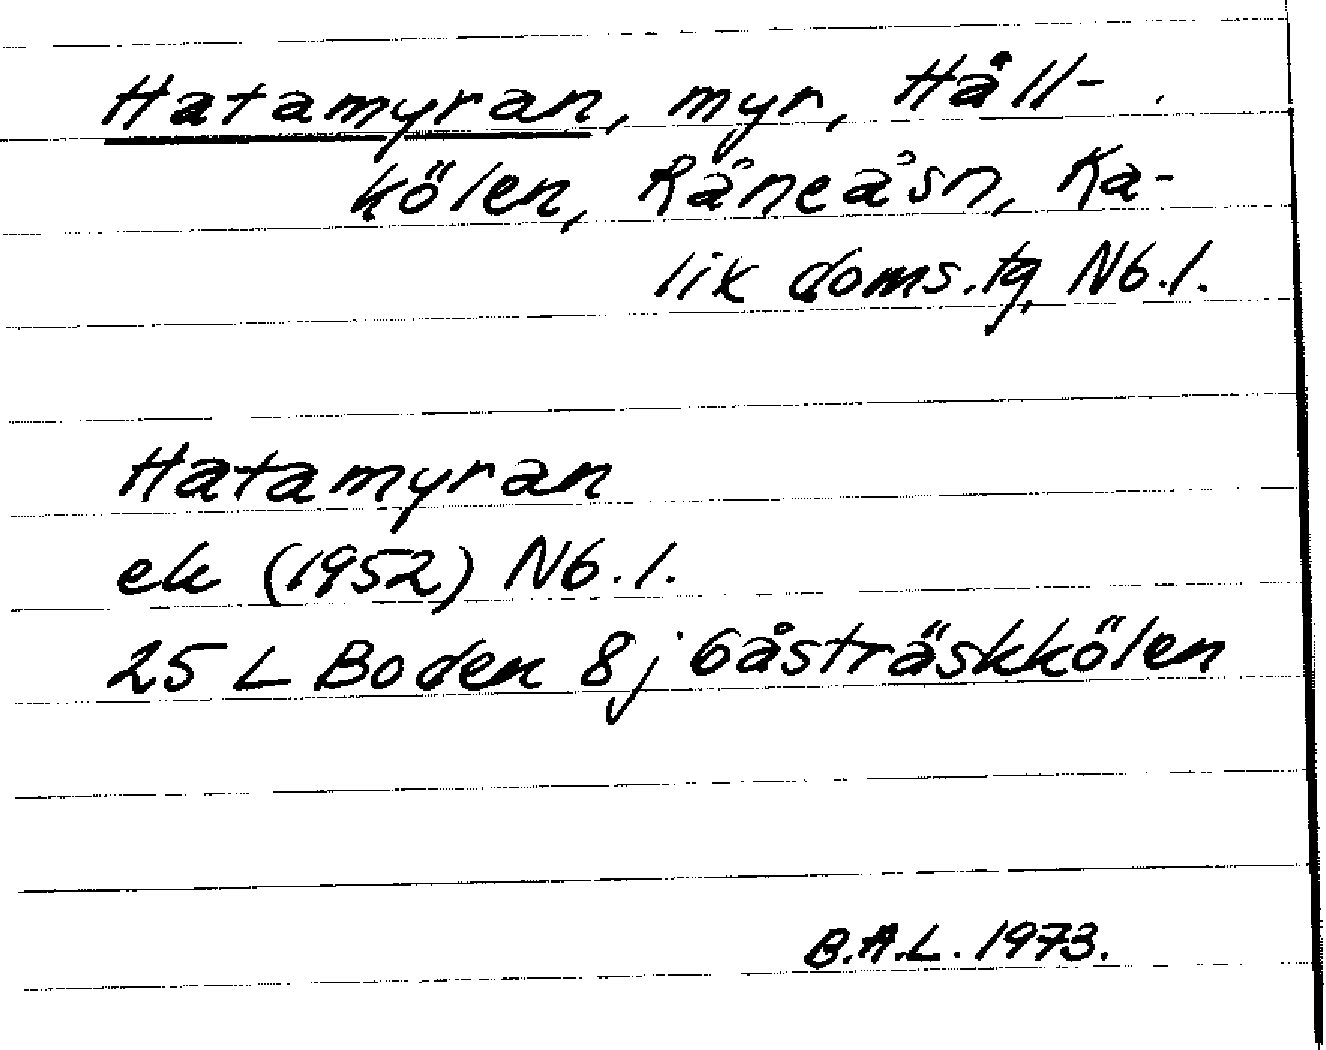 Hatamyran, myr, Håll-
kölen, Råneå sn, Ka-
lix doms.tg, Nb.l.
Hatamyran
ek (1952) Nb.l.
25 L Boden 8j Gåsträskkölen
B.A.L. 1973.